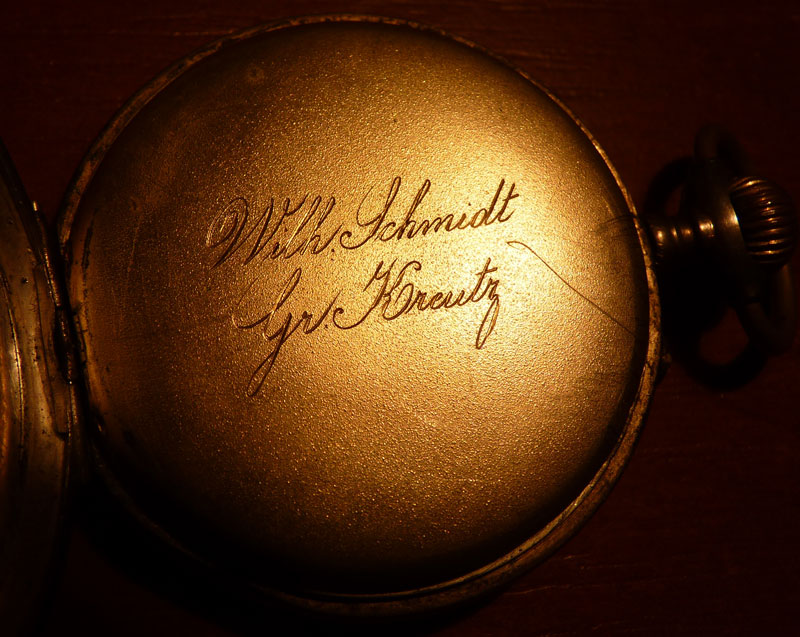 Wilh. Schmidt
Gr. Kreutz